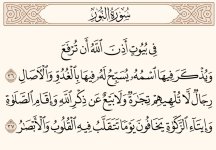 سُورَةُ النُّورِ
فِي بُيُوتٍ أَذِنَ ٱللَّهُ أَن تُرْفَعَ
وَيُذْكَرَ فِيهَا ٱسْمُهُۥ يُسَبِّحُ لَهُۥ فِيهَا بِٱلْغُدُوِّ وَٱلْءَاصَالِ ٣٦
رِجَالٌ لَّا تُلْهِيهِمْ تِجَٰرَةٌ وَلَا بَيْعٌ عَن ذِكْرِ ٱللَّهِ وَإِقَامِ ٱلصَّلَوٰةِ
وَإِيتَآءِ ٱلزَّكَوٰةِ يَخَافُونَ يَوْمًا تَتَقَلَّبُ فِيهِ ٱلْقُلُوبُ وَٱلْأَبْصَٰرُ ٣٧